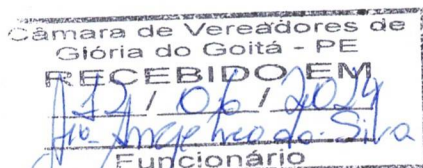 Câmara de Vereadores de
Glória do Goitá - PE
RECEBIDO EM
12 / 06 / 2024
da Silva
Funcionário